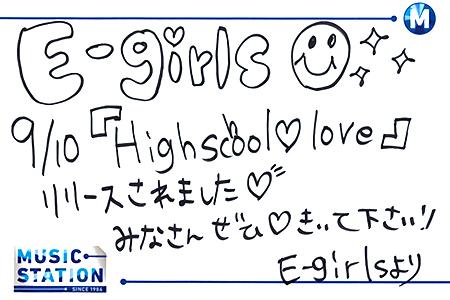 M
E-girls
9/10『Highscool♡love』
リリースされました♡
みなさん ぜひ♡きいて下さい!!
E-girlsより
MUSIC
STATION
SINCE 1986